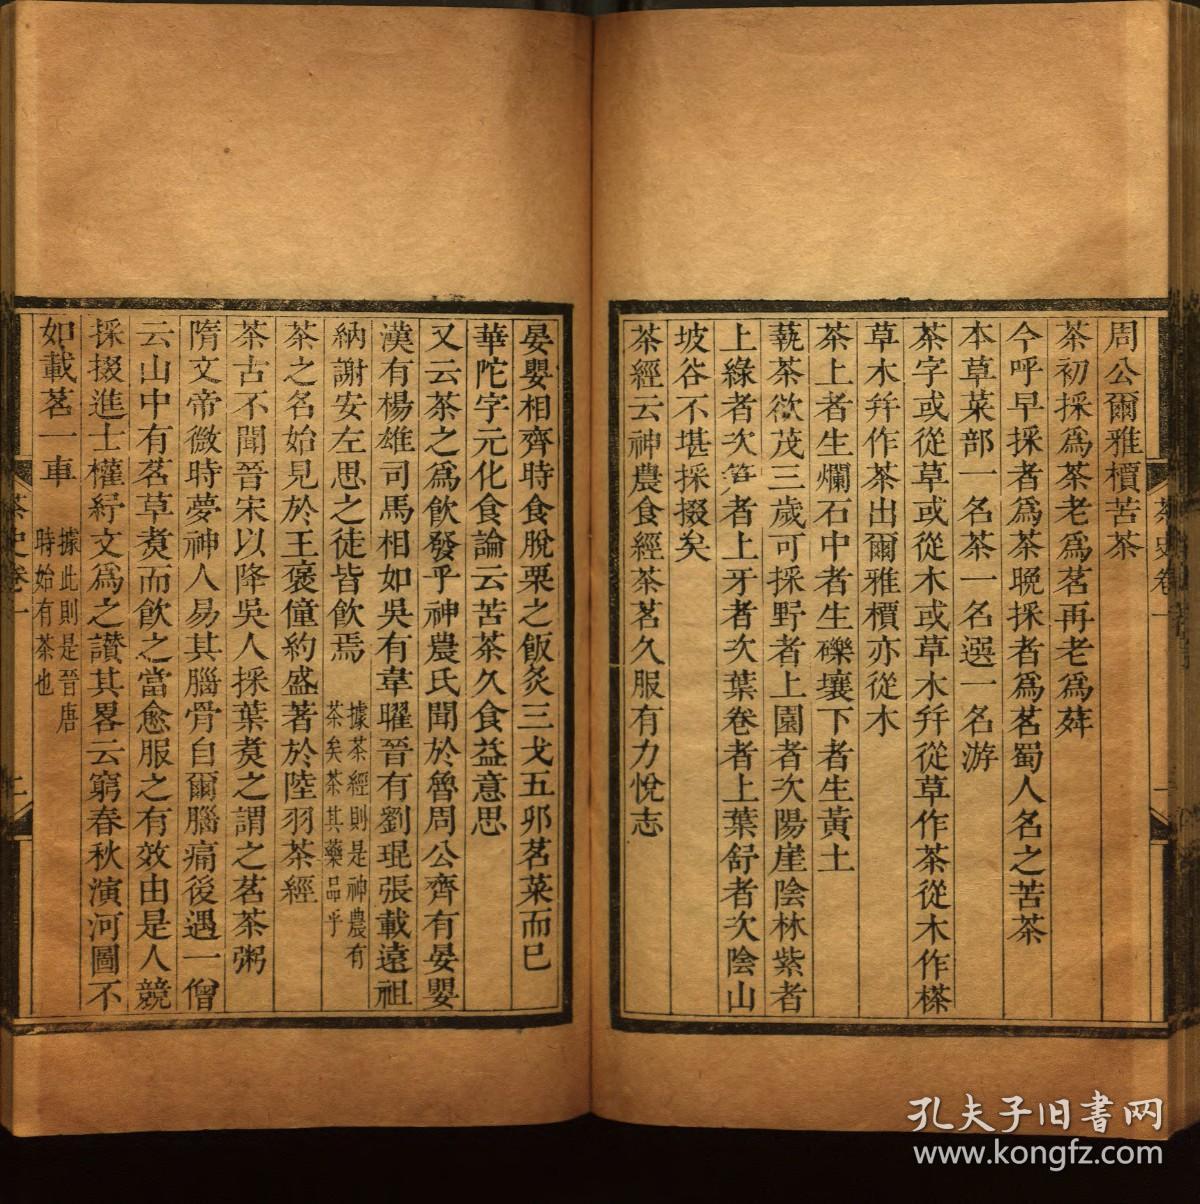 周公爾雅檟苦茶
茶初採爲茶老爲茗再老爲荈
今呼早採者爲茶晩採者爲茗蜀人名之苦茶
本草菜部一名茶一名選一名游
茶字或從草或從木或草木幷從草作茶從木作㯶
草木幷作茶出爾雅檟亦從木
茶上者生爛石中者生礫壤下者生黃土
蓺茶欲茂三歲可採野者上園者次陽崖陰林紫者
上綠者次筍者上牙者次葉卷者上葉舒者次陰山
坡谷不堪採掇矣
茶經云神農食經茶茗久服有力悅志
晏嬰相齊時食脫粟之飯炙三戈五卵茗菜而已
華陀字元化食論云苦茶久食益意思
又云茶之爲飲發乎神農氏聞於魯周公齊有晏嬰
漢有楊雄司馬相如吳有韋曜晉有劉琨張載遠祖
納謝安左思之徒皆飲焉
據茶經則是神農有
茶矣茶其藥品乎
茶之名始見於王褒僮約盛著於陸羽茶經
茶古不聞晉宋以降吳人採葉煑之謂之茗茶粥
隋文帝微時夢神人易其腦骨自爾腦痛後遇一僧
云山中有茗草煑而飲之當愈服之有效由是人競
採掇進士權紓文爲之讃其畧云窮春秋演河圖不
如載茗一車
據此則是晉唐
時始有茶也
茶史卷一
二
茶史卷一
孔夫子旧書网
www.kongfz.com